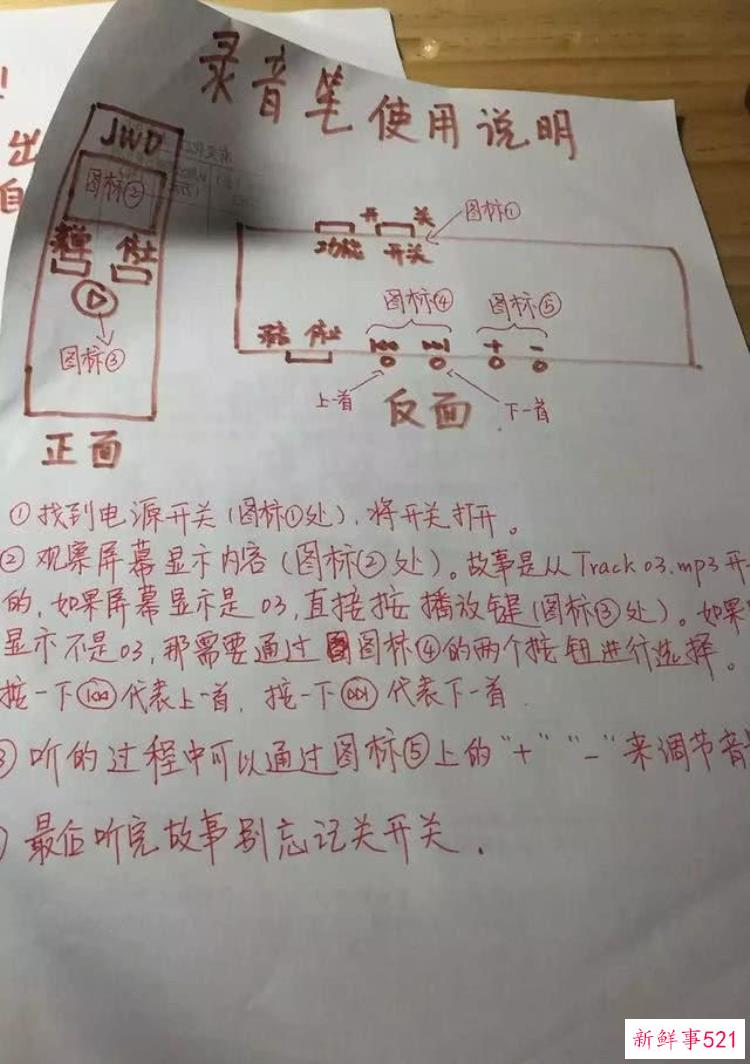 录音笔使用说明
出
自
JWD
图标②
菜单 停止
图标③
正面
开 关
图标①
功能 开关
图标④ 图标⑤
停止
+ -
上一首
反面
下一首
①找到电源开关(图标①处),将开关打开。
②观察屏幕显示内容(图标②处)。故事是从Track03.mp3开
的,如果屏幕显示是03,直接按播放键(图标③处)。如果
显示不是03,那需要通过图标④的两个按钮进行选择。
按一下代表上一首,按一下代表下一首
听的过程中可以通过图标⑤上的"+""-"来调节音
最后听完故事别忘记关开关.
新鲜事521